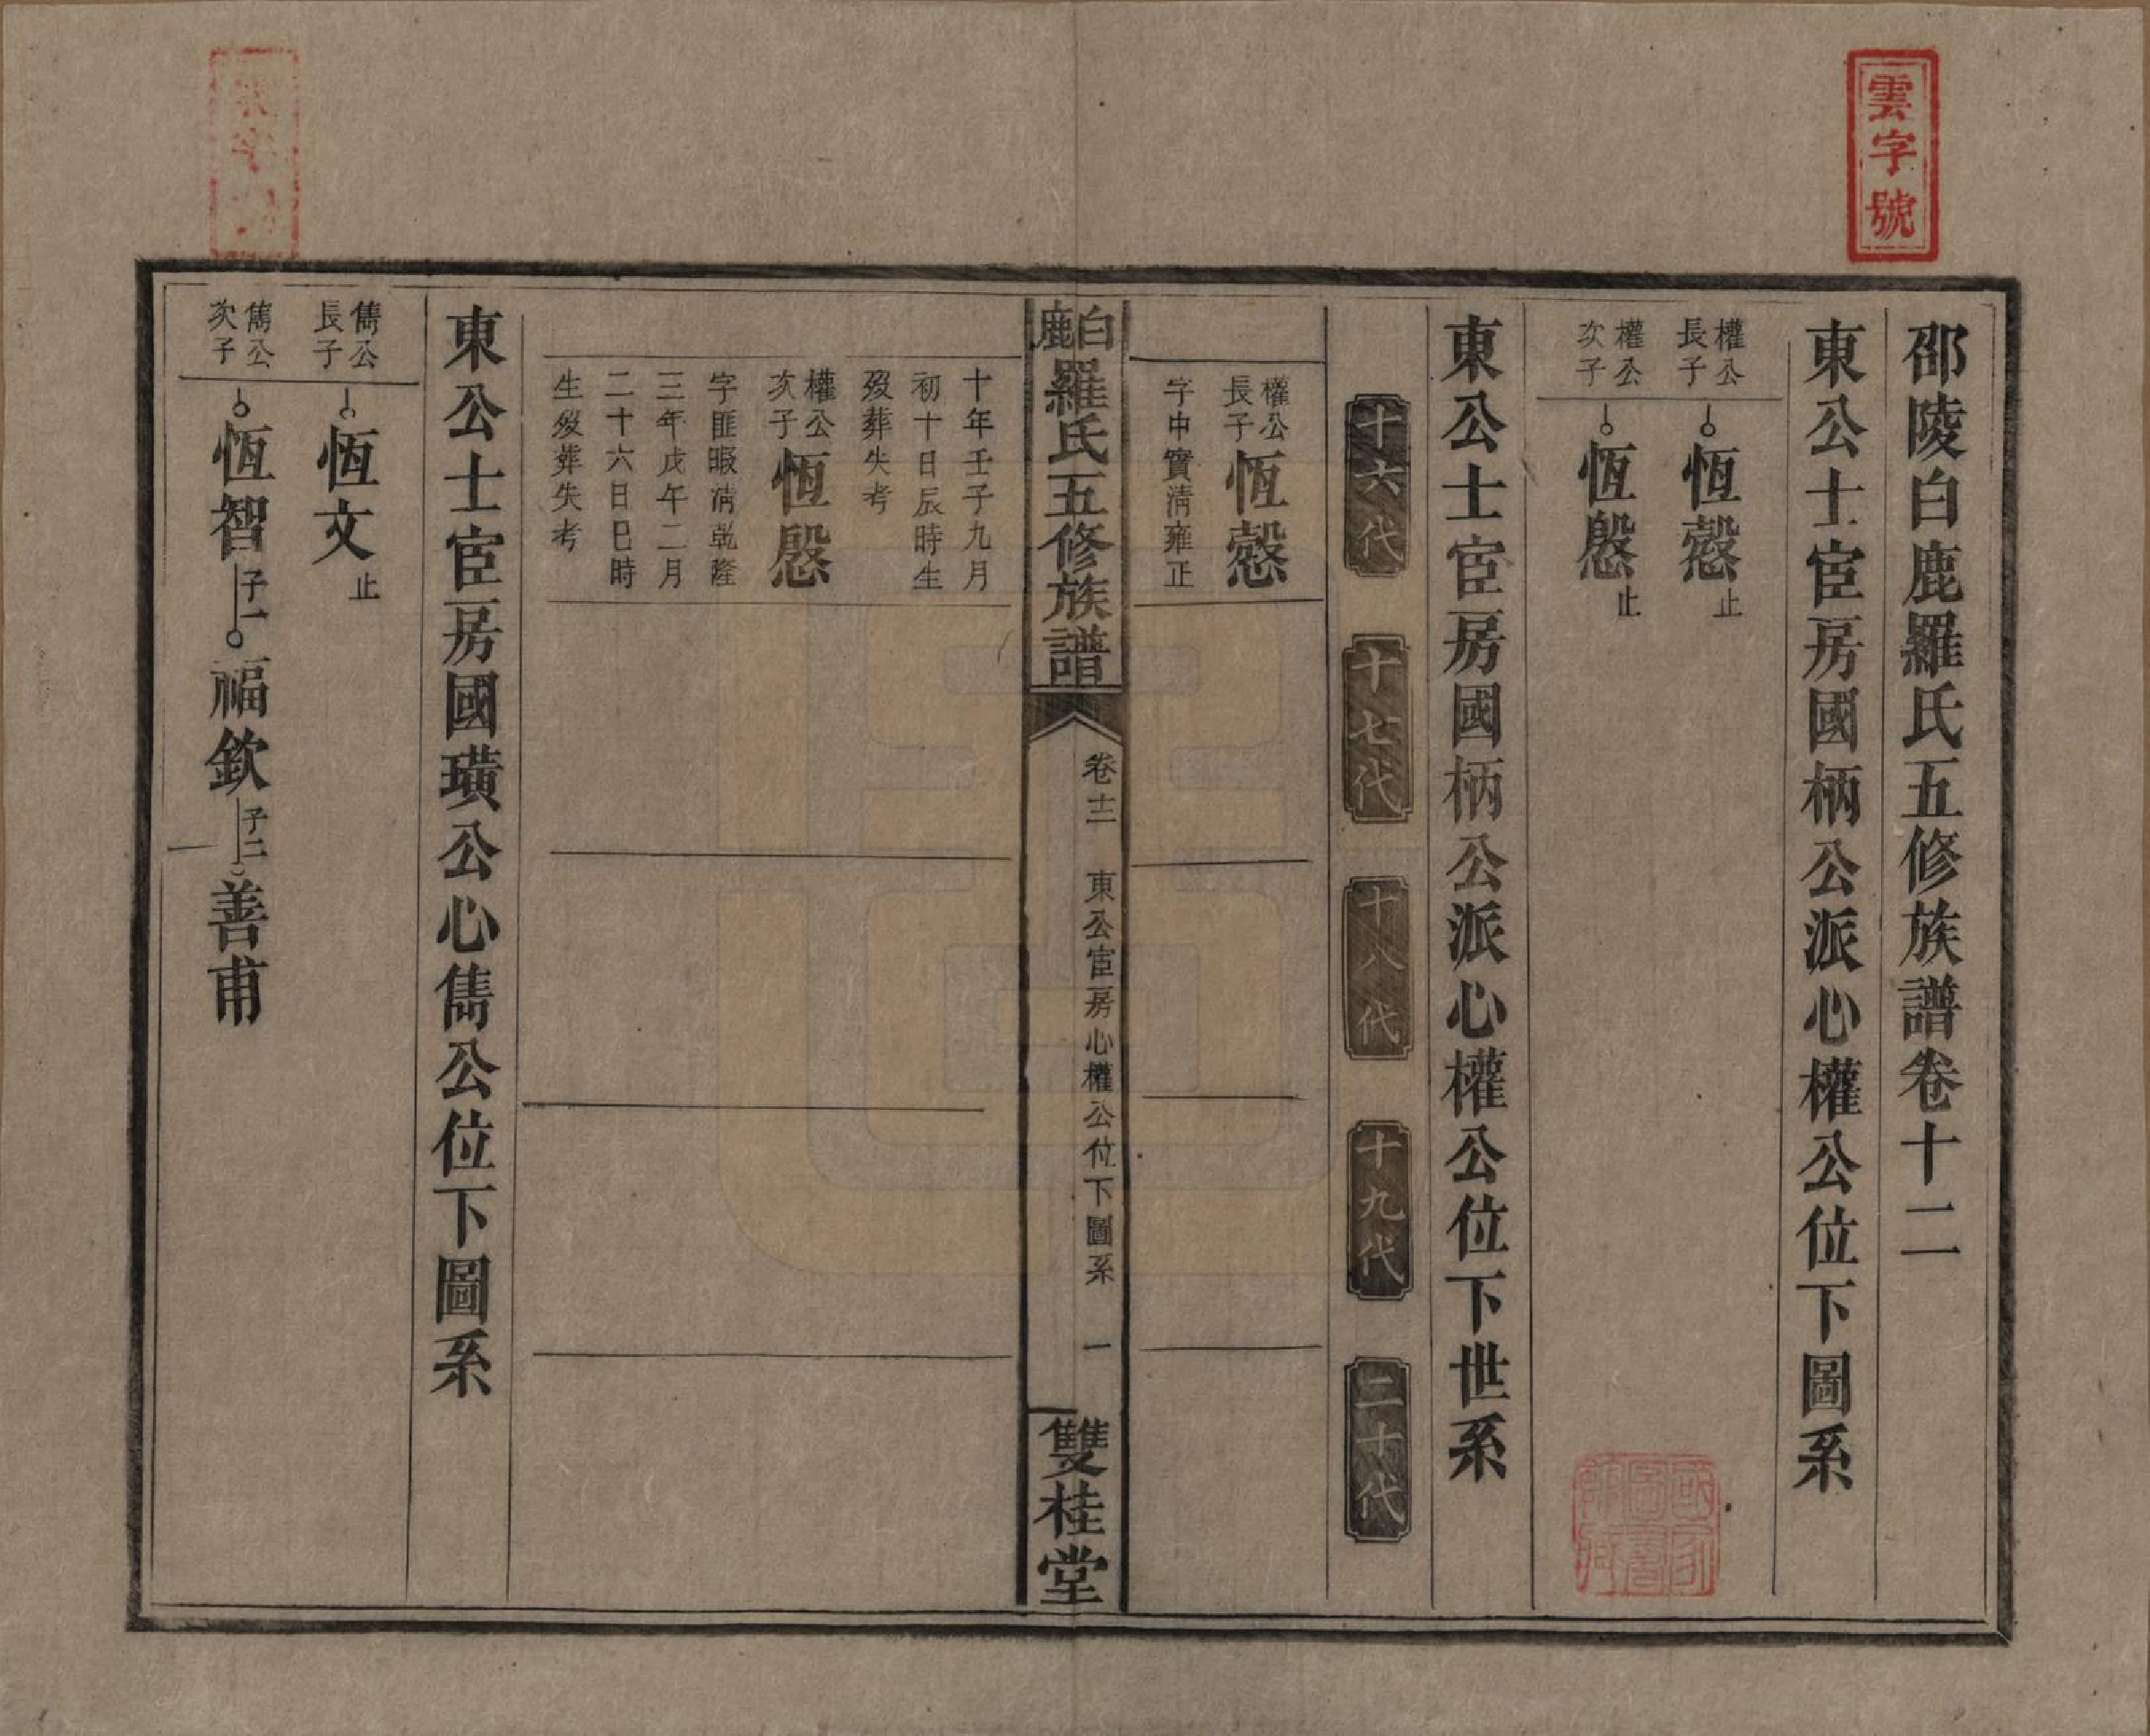 雲字號
邵陵白鹿羅氏五修族譜卷十二
東公士宦房國柄公派心權公位下圖系
權公長子
恆愨止
權公次子
恆慇止
東公士宦房國柄公派心權公位下世系
十六代
十七代
十八代
十九代
二十代
權公長子
恆愨
字中實清雍正
白鹿羅氏五修族譜
卷十二
東公宦房心權公位下圖系
一
雙桂堂
十年壬子九月
初十日辰時生
歿葬失考
權公次子
恆慇
字匪暇清乾隆
三年戊午二月
二十六日巳時
生歿葬失考
東公士宦房國璜公心儁公位下圖系
儁公長子
恆文止
儁公次子
恆智子一福欽子二善甫